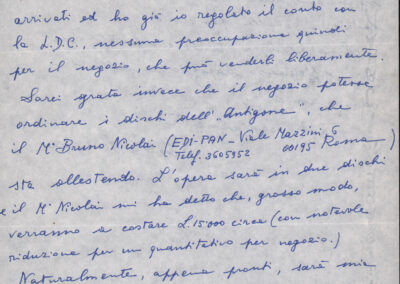 arrivati ed ho già io regolato il conto con
la L.D.C., nessuna preoccupazione quindi
per il negozio, che può venderli liberamente.
Sarei grata invece che il negozio potesse
ordinare i dischi dell'"Antigone", che
il Mº Bruno Nicolai (EDI-PAN - Viale Mazzini 6
Telef. 3605952 00195 Roma)
sta allestendo. L'opera sarà in due dischi
e il Mº Nicolai mi ha detto che, grosso modo,
verranno a costare L.15000 circa (con notevole
riduzione per un quantitativo per negozio.)
Naturalmente, appena pronti, sarà mia